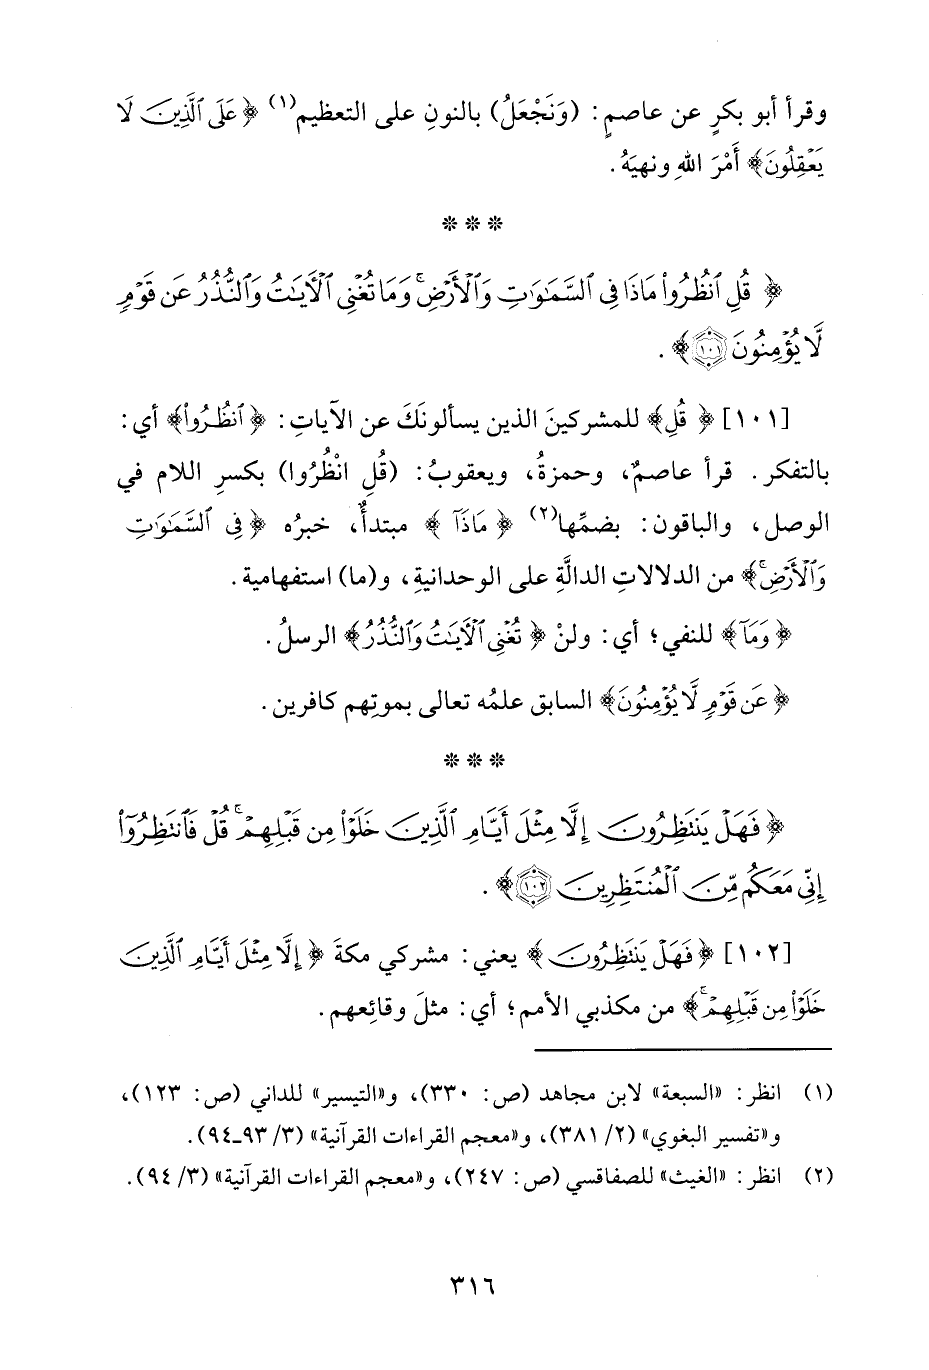 وقرأ أبو بكرٍ عن عاصمٍ: (وَنَجْعَلُ) بالنونِ على التعظيم(١) ﴿عَلَى ٱلَّذِينَ لَا
يَعْقِلُونَ﴾ أَمْرَ اللهِ ونهيَهُ.
* * *
﴿قُلِ ٱنظُرُوا۟ مَاذَا فِى ٱلسَّمَـٰوَٰتِ وَٱلْأَرْضِ ۚ وَمَا تُغْنِى ٱلْـَٔايَـٰتُ وَٱلنُّذُرُ عَن قَوْمٍ
لَّا يُؤْمِنُونَ ١٠١﴾.
[١٠١] ﴿قُلِ﴾ للمشركينَ الذين يسألونَكَ عن الآياتِ: ﴿ٱنظُرُوا۟﴾ أي:
بالتفكر. قرأ عاصمٌ، وحمزةُ، ويعقوبُ: (قُلِ انْظُرُوا) بكسرِ اللام في
الوصل، والباقون: بضمِّها(٢) ﴿مَاذَآ﴾ مبتدأٌ، خبرُه ﴿فِى ٱلسَّمَـٰوَٰتِ
وَٱلْأَرْضِ ۚ﴾ من الدلالاتِ الدالَّةِ على الوحدانيةِ، و(ما) استفهامية.
﴿وَمَآ﴾ للنفي؛ أي: ولنْ ﴿تُغْنِى ٱلْـَٔايَـٰتُ وَٱلنُّذُرُ﴾ الرسلُ.
﴿عَن قَوْمٍ لَّا يُؤْمِنُونَ﴾ السابق علمُه تعالى بموتِهم كافرين.
* * *
﴿فَهَلْ يَنتَظِرُونَ إِلَّا مِثْلَ أَيَّامِ ٱلَّذِينَ خَلَوْا۟ مِن قَبْلِهِمْ ۚ قُلْ فَٱنتَظِرُوٓا۟
إِنِّى مَعَكُم مِّنَ ٱلْمُنتَظِرِينَ ١٠٢﴾.
[١٠٢] ﴿فَهَلْ يَنتَظِرُونَ﴾ يعني: مشركي مكةَ ﴿إِلَّا مِثْلَ أَيَّامِ ٱلَّذِينَ
خَلَوْا۟ مِن قَبْلِهِمْ ۚ﴾ من مكذبي الأمم؛ أي: مثلَ وقائِعهم.
(١) انظر: «السبعة» لابن مجاهد (ص: ٣٣٠)، و«التيسير» للداني (ص: ١٢٣)،
و«تفسير البغوي» (٢/ ٣٨١)، و«معجم القراءات القرآنية» (٣/ ٩٣ـ٩٤).
(٢) انظر: «الغيث» للصفاقسي (ص: ٢٤٧)، و«معجم القراءات القرآنية» (٣/ ٩٤).
٣١٦